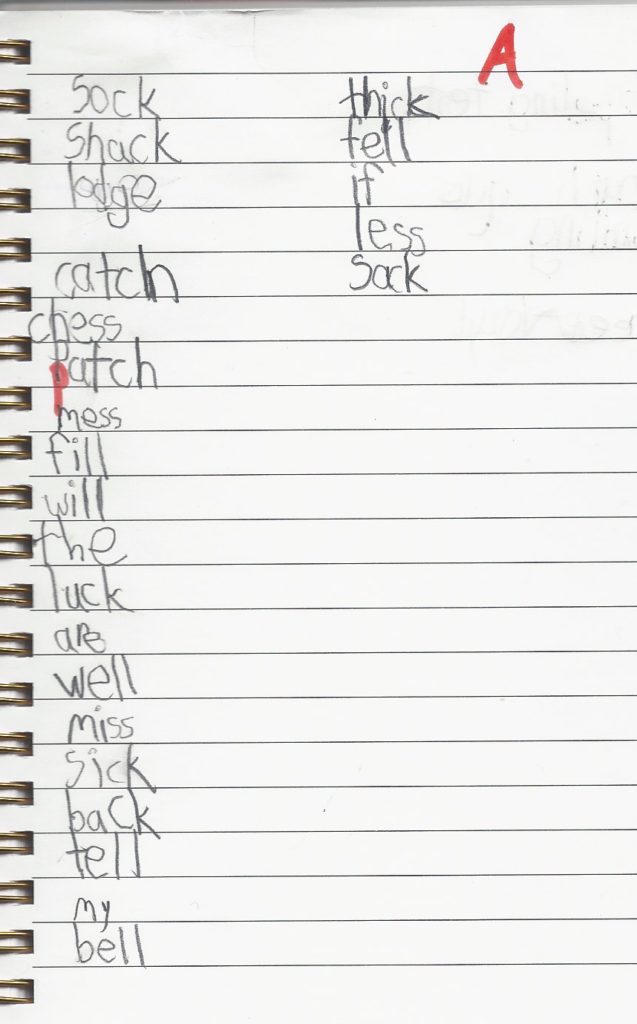 A
sock
shack
lodge
catch
chess
patch
mess
fill
will
the
luck
are
well
miss
sick
back
tell
my
bell
thick
fell
if
less
sack